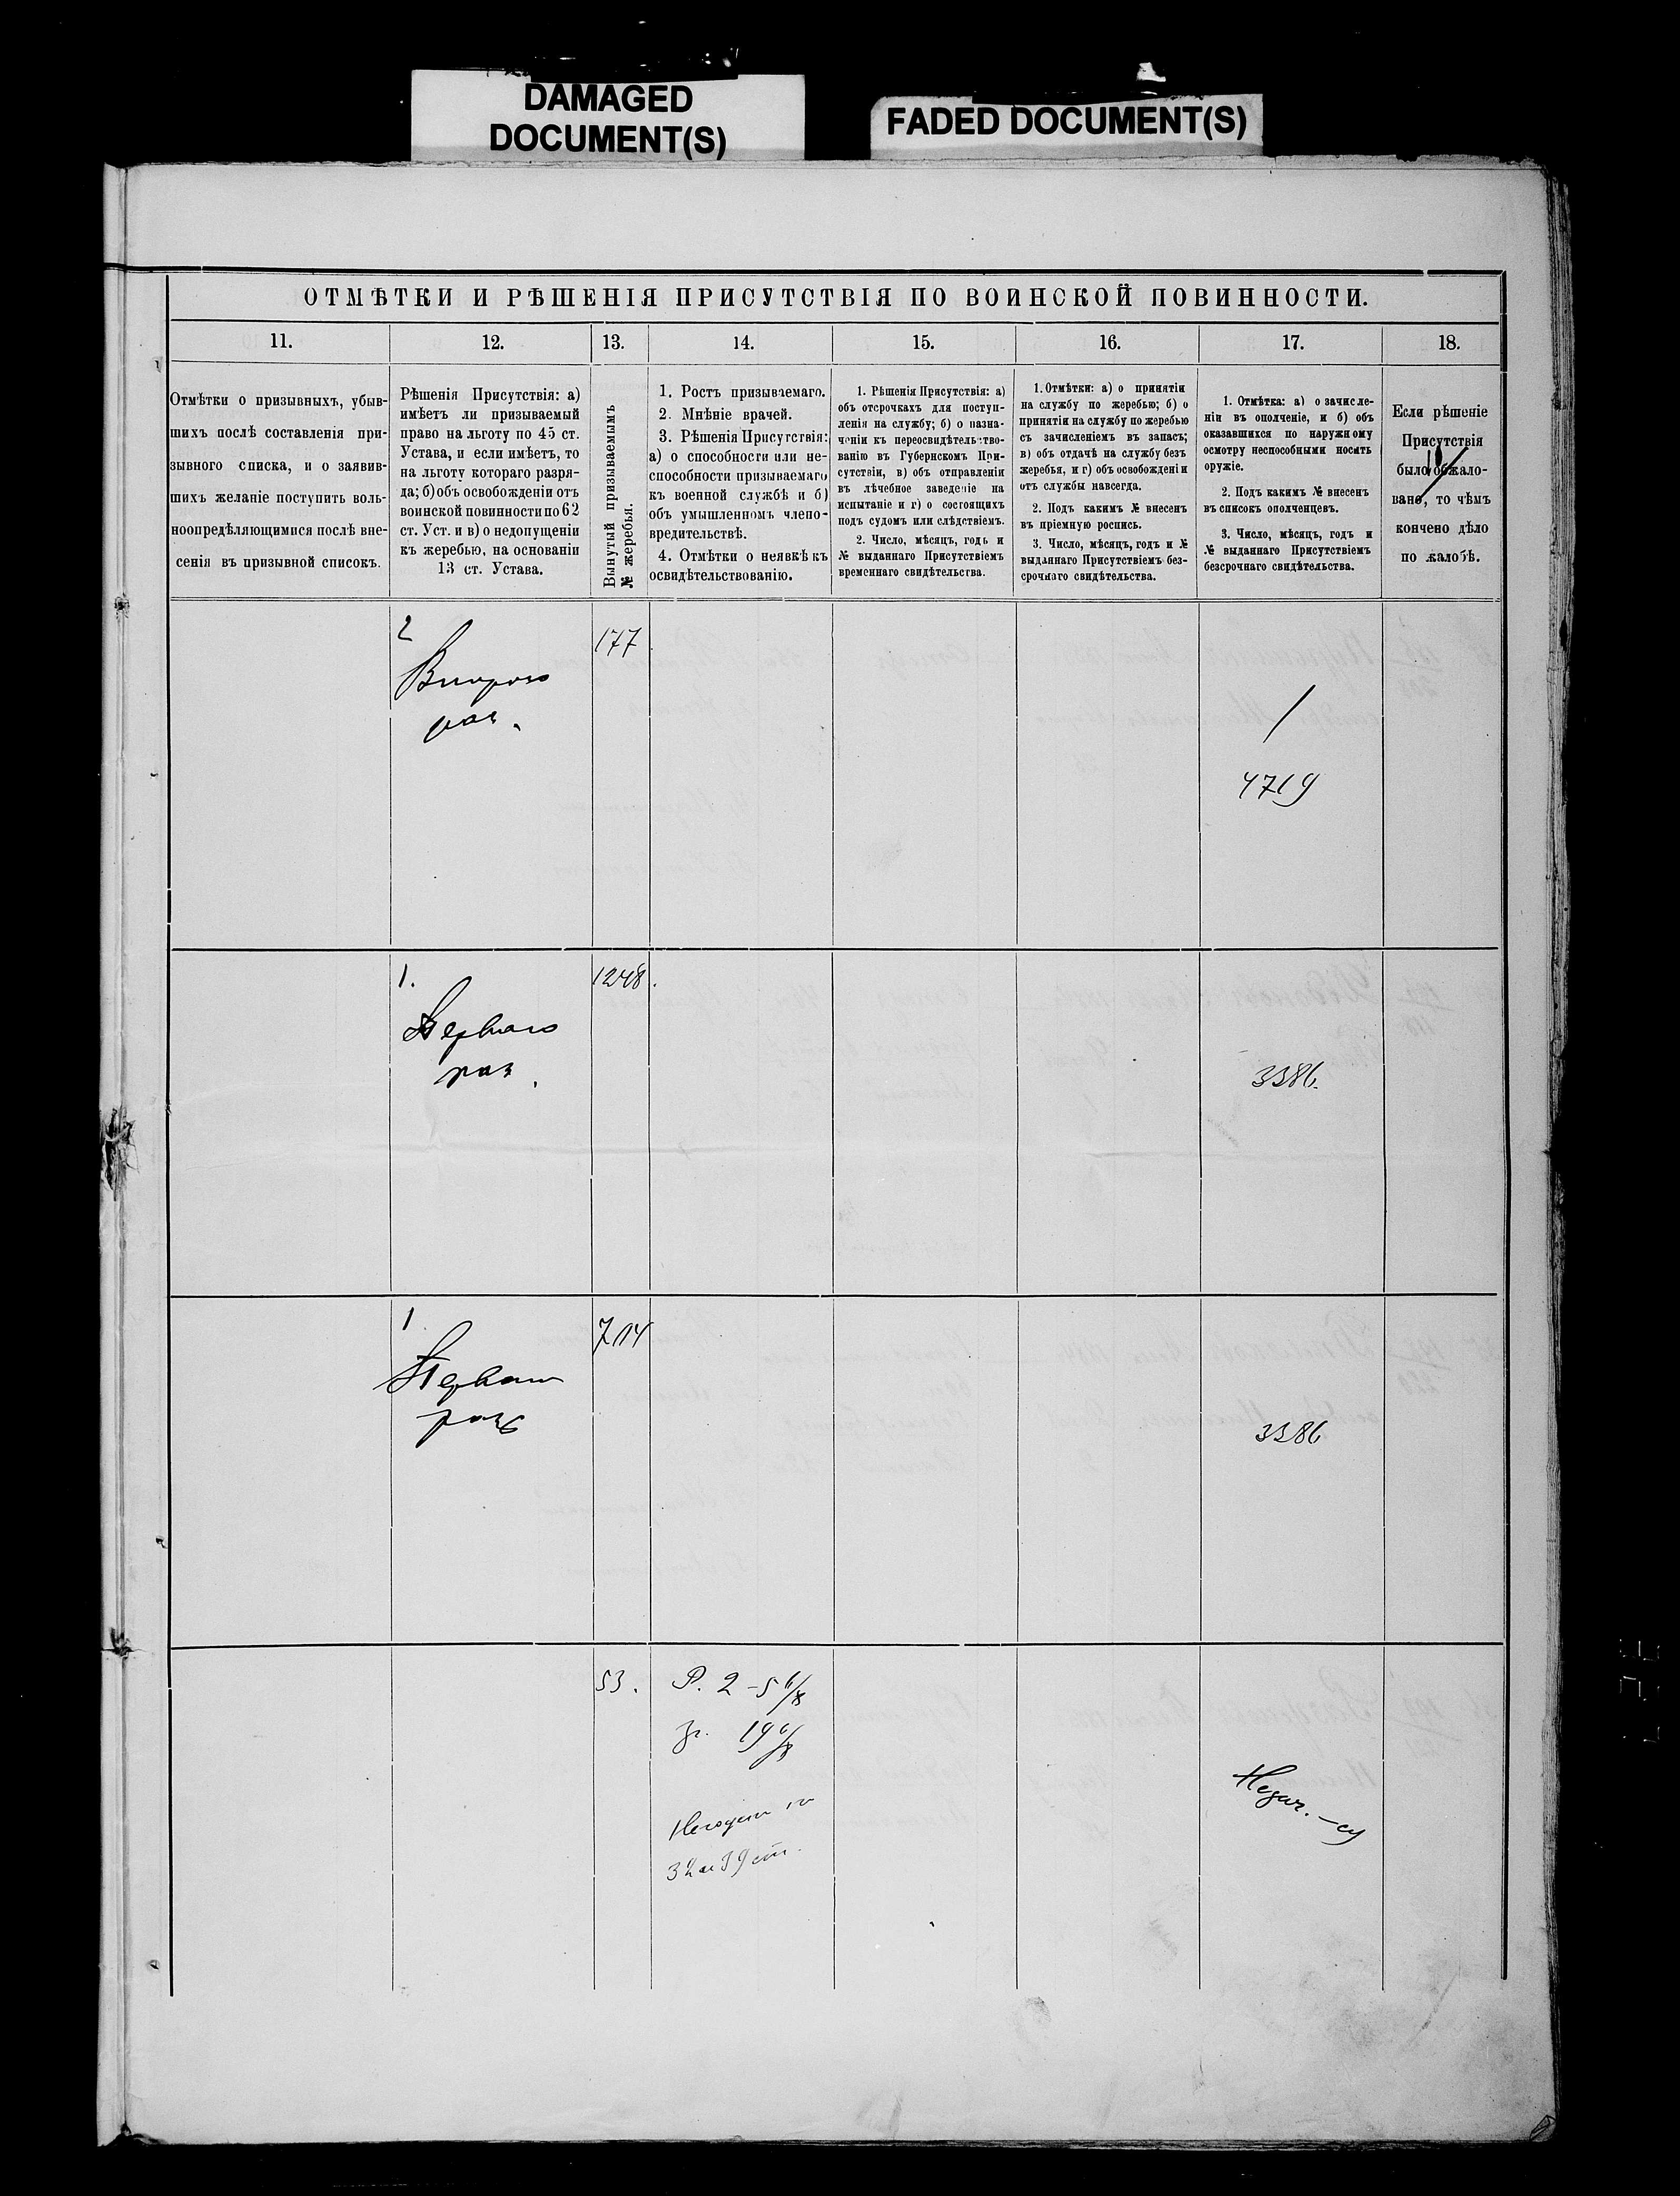 DAMAGED
DOCUMENT(S)
FADED DOCUMENT(S)
ОТМѢТКИ И РѢШЕНІЯ ПРИСУТСТВІЯ ПО ВОИНСКОЙ ПОВИННОСТИ.
11.
12.
13.
14.
15.
16.
17.
18.
Отмѣтки о призывныхъ, убыв-
шихъ послѣ составленія при-
зывного списка, и о заявив-
шихъ желаніе поступить воль-
ноопредѣляющимися послѣ вне-
сенія въ призывной списокъ.
Рѣшенія Присутствія: а)
имѣетъ ли призываемый
право на льготу по 45 ст.
Устава, и если имѣетъ, то
на льготу котораго разря-
да; б) объ освобожденіи отъ
воинской повинности по 62
ст. Уст. и в) о недопущеніи
къ жеребью, на основаніи
13 ст. Устава.
Вынутый призываемымъ
№ жеребья.
1. Ростъ призываемаго.
2. Мнѣніе врачей.
3. Рѣшенія Присутствія:
а) о способности или не-
способности призываемаго
къ военной службѣ и б)
объ умышленномъ члено-
вредительствѣ.
4. Отмѣтки о неявкѣ къ
освидѣтельствованію.
1. Рѣшенія Присутствія: а)
объ отсрочкахъ для поступ-
ленія на службу; б) о назна-
ченіи къ переосвидѣтельство-
ванію въ Губернскомъ При-
сутствіи, в) объ отправленіи
въ лѣчебное заведеніе на
испытаніе и г) о состоящихъ
подъ судомъ или слѣдствіемъ.
2. Число, мѣсяцъ, годъ и
№ выданнаго Присутствіемъ
временнаго свидѣтельства.
1. Отмѣтки: а) о принятіи
на службу по жеребью; б) о
принятіи на службу по жеребью
съ зачисленіемъ въ запасъ;
в) объ отдачѣ на службу безъ
жеребья, и г) объ освобожденіи
отъ службы навсегда.
2. Подъ какимъ № внесенъ
въ пріемную роспись.
3. Число, мѣсяцъ, годъ и №
выданнаго Присутствіемъ без-
срочнаго свидѣтельства.
1. Отмѣтка: а) о зачисле-
ніи въ ополченіе, и б) объ
оказавшихся по наружному
осмотру неспособными носить
оружіе.
2. Подъ какимъ № внесенъ
въ списокъ ополченцевъ.
3. Число, мѣсяцъ, годъ и
№ выданнаго Присутствіемъ
безсрочнаго свидѣтельства.
Если рѣшеніе
Присутствія
было обжало-
вано, то чѣмъ
кончено дѣло
по жалобѣ.
2
Второго
раз.
177
4719
1.
Перваго
раз.
1248.
3386.
1
Перваго
разр
714
3386
53.
Р. 2 - 5 6/8
гр. 19 6/8
Негоденъ по
32 и 39 ст.